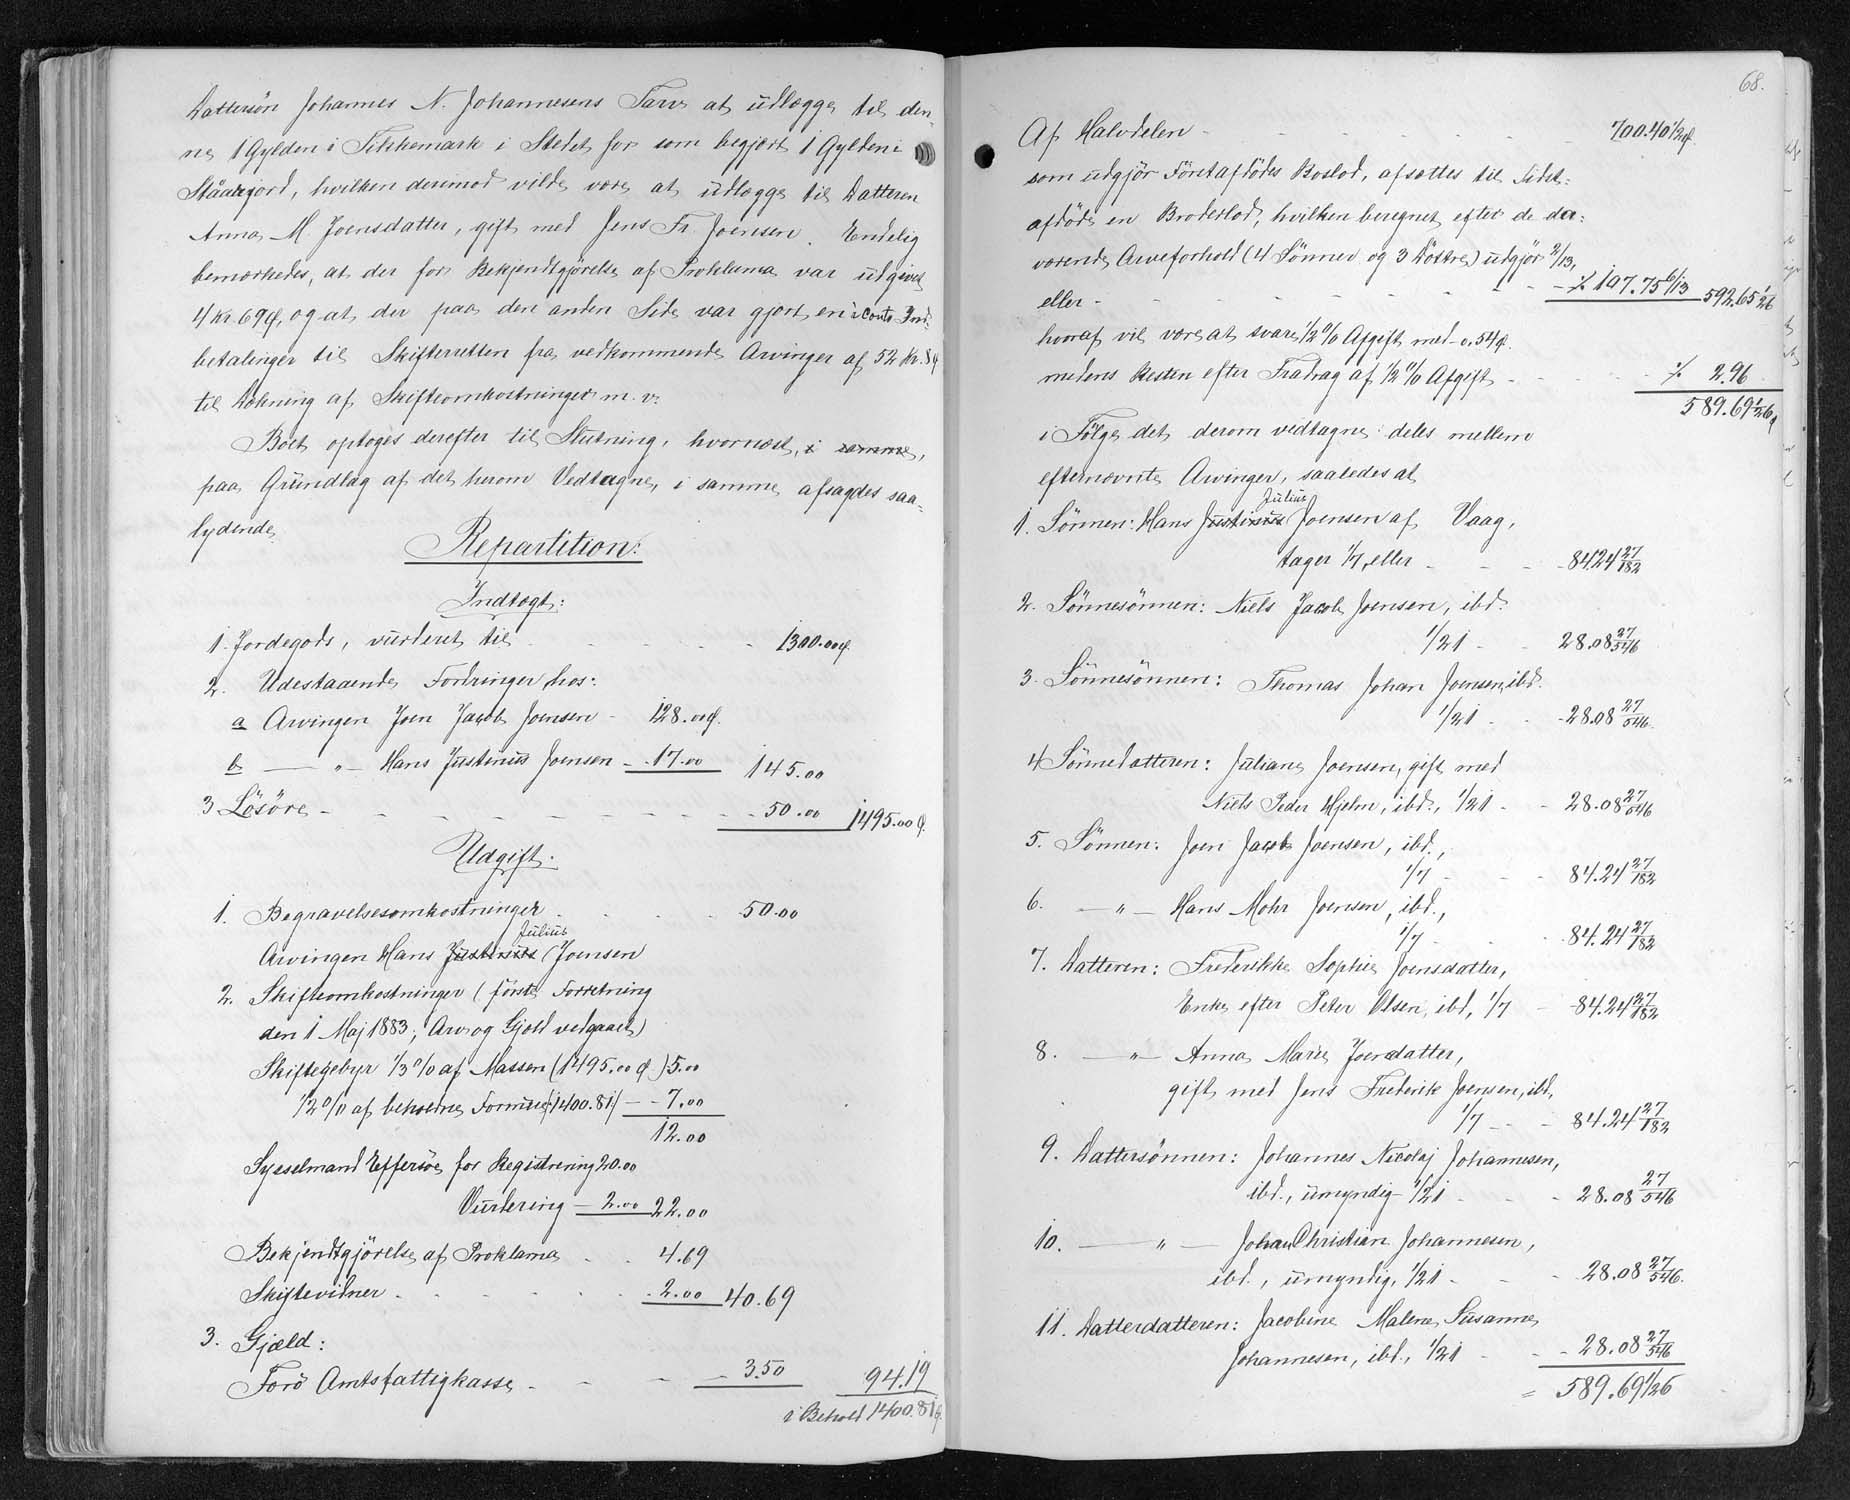 Dattersön Johannes N. Johannesens Tarv at udlægge til den-
ne 1 Gylden i Sitkemark i Stedet for som begjært 1 Gylden i
hvilken derimod vilde være at udlægge til Datteren
Anna M. Joensdatter, gift med Jens Fr. Joensen. Endelig
bemærkedes, at der for Bekjendtgjörelse af Proklama var udgivet
4 Kr. 69 ø, og at der paa den anden Side var gjort en à Conto Ind-
betalinger til Skifteretten fra vedkommende Arvinger af 52 Kr. 8 ø
til Dækning af Skifteomkostninger m. v.
Boet optoges derefter til Slutning, hvornæst, i samme,
paa Grundlag af det herom Vedtagne, i samme afsagdes saa-
lydende
Repartition:
Indtægt:
1. Jordegods, vurderet til - - - - - 1300.00 ø.
2. Udestaaende Fordringer hos:
a Arvingen Joen Jacob Joensen - 128.00 ø.
b — " — Hans Justinus Joensen - 17.00 145.00
3 Lösöre - - - - - - - - 50.00 1495.00 ø.
Udgift.
1. Begravelsesomkostninger - - - - 50.00
Julius
Arvingen Hans Justinus (Joensen
2. Skifteomkostninger (förste Forretning
den 1 Maj 1883; Arv og Gjæld vedgaaet)
Skiftegebyr 1/3 % af Massen (1495.00 ø) 5.00
1/2 % af beholdne Formue (1400.81) - - 7.00
12.00
Sysselmand Effersöe for Registrering 20.00
Vurdering - 2.00 22.00
Bekjendtgjörelse af Proklama - - 4.69
Skiftevidner - - - - - 2.00 40.69
3. Gjæld:
Færö Amtsfattigkasse - - - - 3.50 94.19
i Behold 1400.81 ø.
68.
Af Halvdelen - - - - - - 700.40 1/2 ø.
som udgjör Förstafdödes Boslod, afsættes til Sidst-
afdöde en Broderlod, hvilken beregnet efter de da-
værende Arveforhold (4 Sönner og 3 Döttre) udgjör 2/13,
eller - - - - - - - - ÷ 107.75 6/13 592.65 1/26
hvoraf vil være at svare 1/2 % Afgift med - 0.54 ø.
medens Resten efter Fradrag af 1/2 % Afgift - - - - ÷ 2.96
589.69 1/26 ø
i Fölge det derom vedtagne deles mellem
efternævnte Arvinger, saaledes at
Julius
1. Sönnen: Hans Justinus (Joensen af Vaag,
tager 1/7, eller - - - 84.24 27/182
2. Sönnesönnen: Niels Jacob Joensen, ibd.
1/21 - - 28.08 27/546
3. Sönnesönnen: Thomas Johan Joensen, ibd.
1/21 - - 28.08 27/546
4 Sönnedatteren: Juliane Joensen, gift med
Niels Peder Hjelm, ibd., 1/21 - - 28.08 27/546
5. Sönnen: Joen Jacob Joensen, ibd.,
1/7 - - - 84.24 27/182
6. — " — Hans Mohr Joensen, ibd.,
1/7 - - - 84.24 27/182
7. Datteren: Frederikke Sophie Joensdatter,
Enke efter Peter Olsen, ibd, 1/7 - 84.24 27/182
8. — " — Anna Marie Joensdatter,
gift med Jens Frederik Joensen, ibd.,
1/7 - - - 84.24 27/182
9. Dattersönnen: Johannes Nicolaj Johannesen,
ibd., umyndig - 1/21 - - - 28.08 27/546
10. — " — Johan Christian Johannesen,
ibd., umyndig, 1/21 - - - 28.08 27/546.
11. Datterdatteren: Jacobine Malene Susanne
Johannesen, ibd., 1/21 - - - 28.08 27/546
= 589.69 1/26